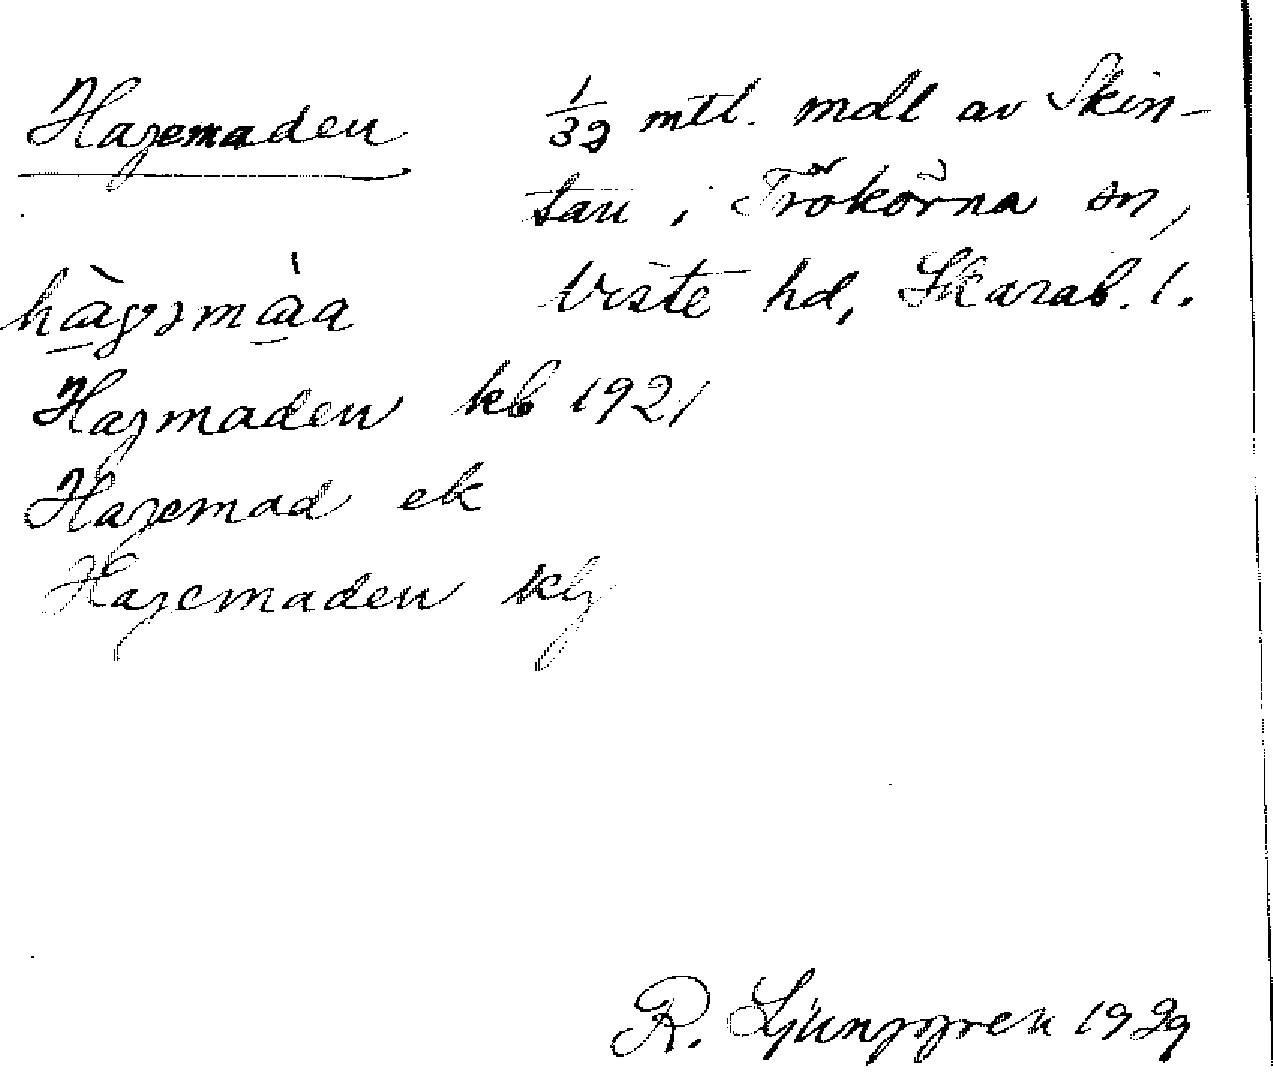 Hagemaden
1/32 mtl. mdl av Skin-
tan i Trökörna sn,
Viste hd, Skarab. l.
Hagmaden kb 1921
Hagemad ek
Hagemaden kg
R. Ljunggren 1929